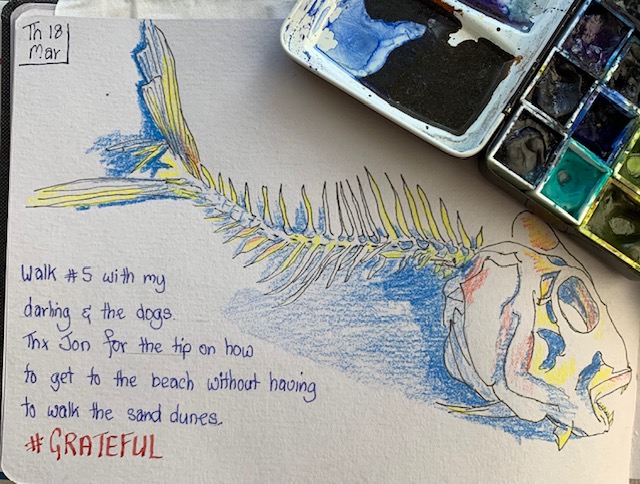 Th 18
Mar
Walk #5 with my
darling & the dogs.
Thx Jon for the tip on how
to get to the beach without having
to walk the sand dunes.
# GRATEFUL